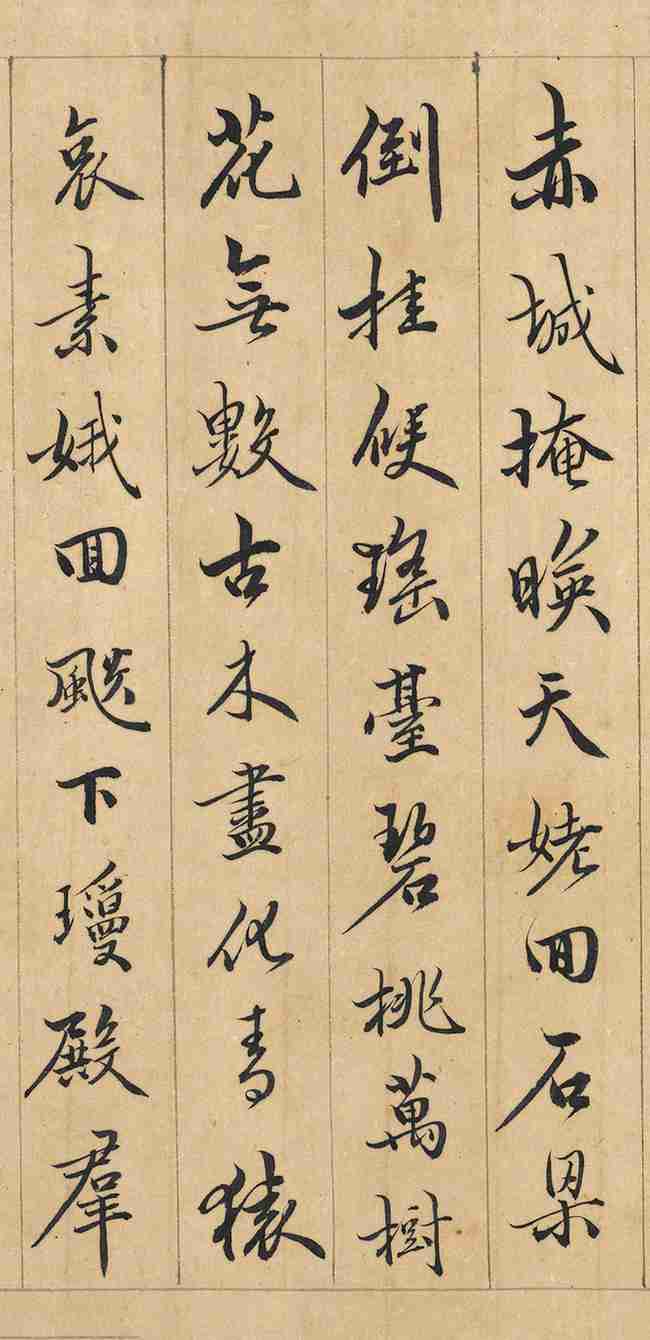 赤城掩暎天姥回石
倒挂候瑤臺碧桃萬樹
花無數古木盡化青猿
哀素娥回飈下瓊殿羣